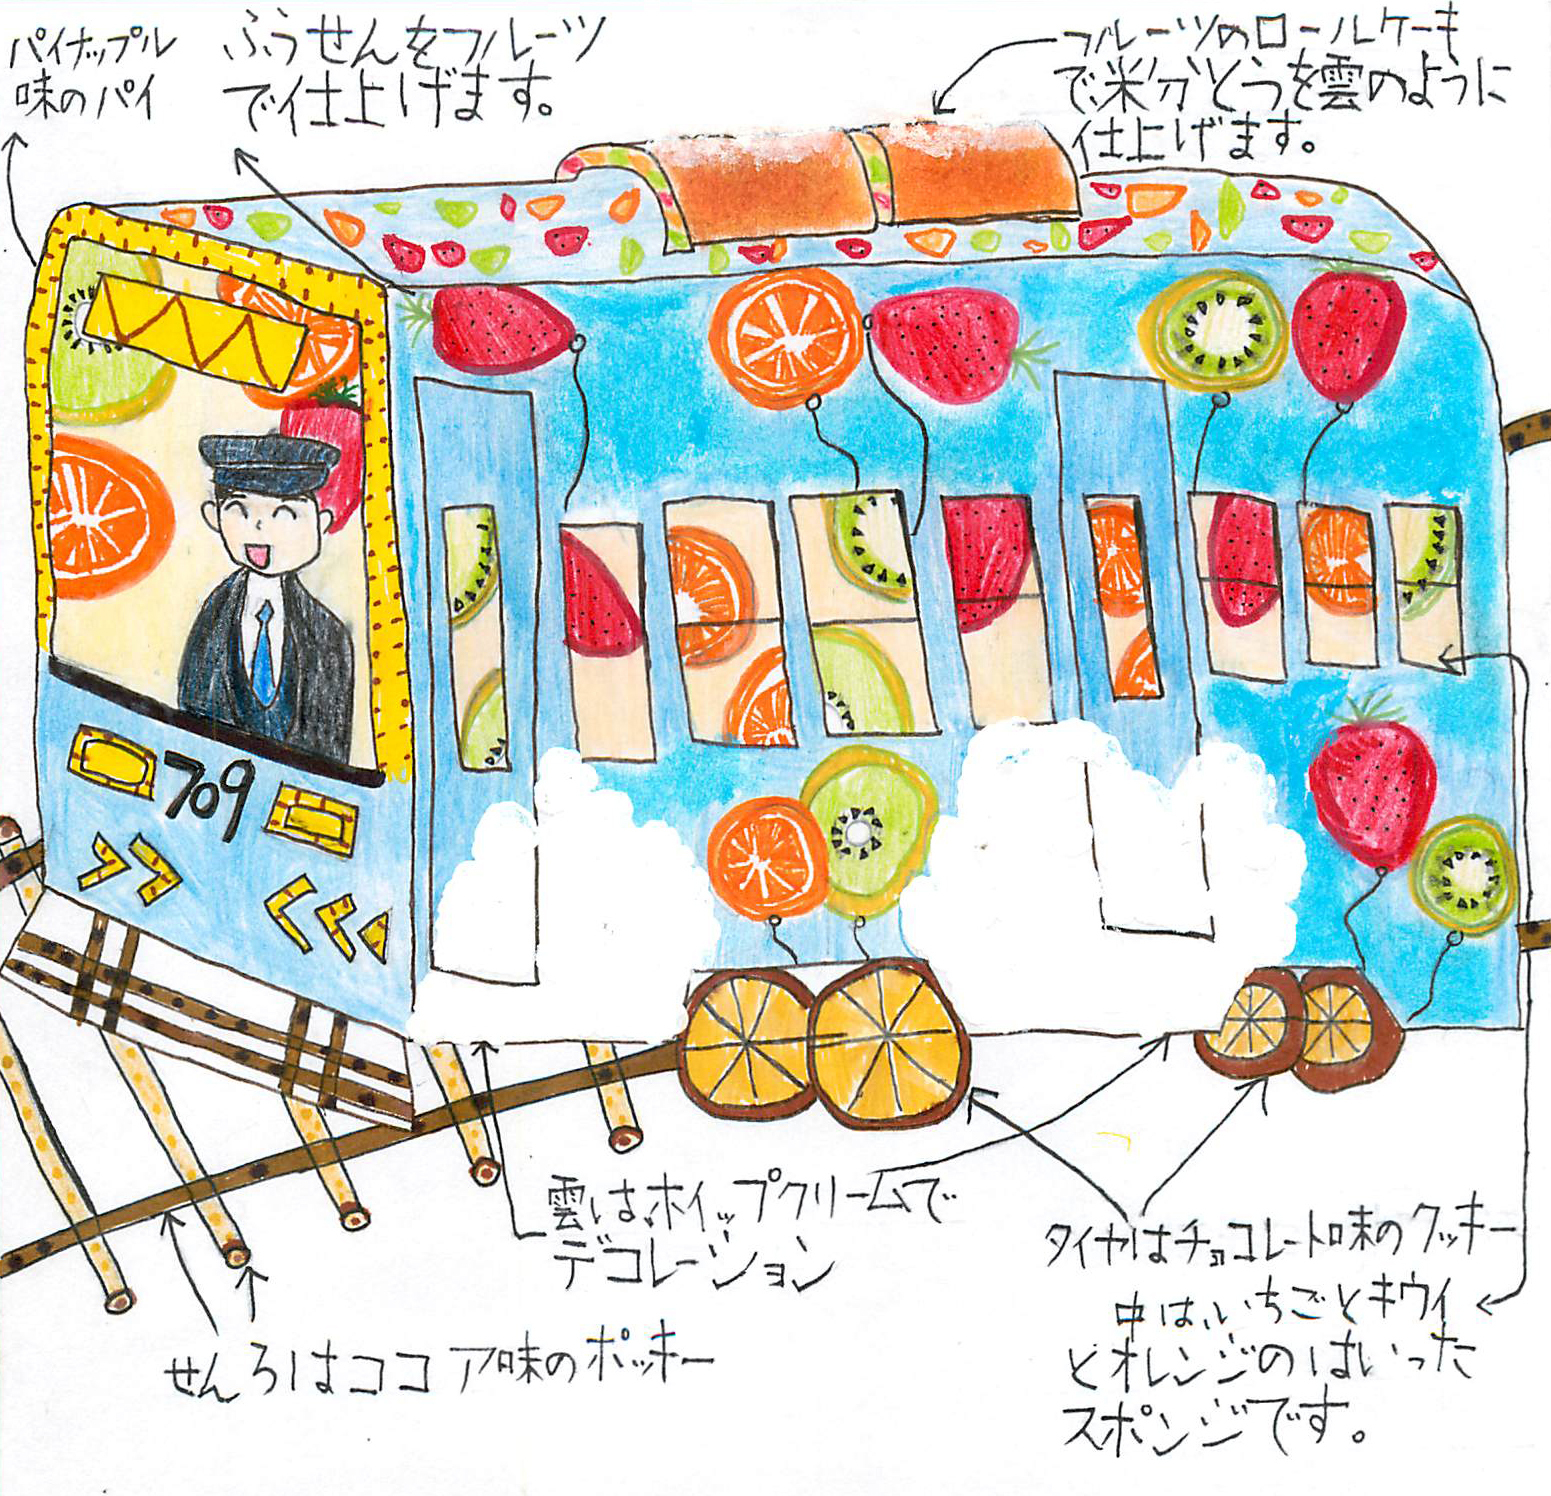 パイナップル
味のパイ
ふうせんをフルーツ
で仕上げます。
フルーツのロールケーキ
で粉とうを雲のように
仕上げます。
709
雲はホイップクリームで
デコレーション
タイヤはチョコレート味のクッキー
中はいちごとキウイ
とオレンジのはいった
スポンジです。
せんろはココア味のポッキー